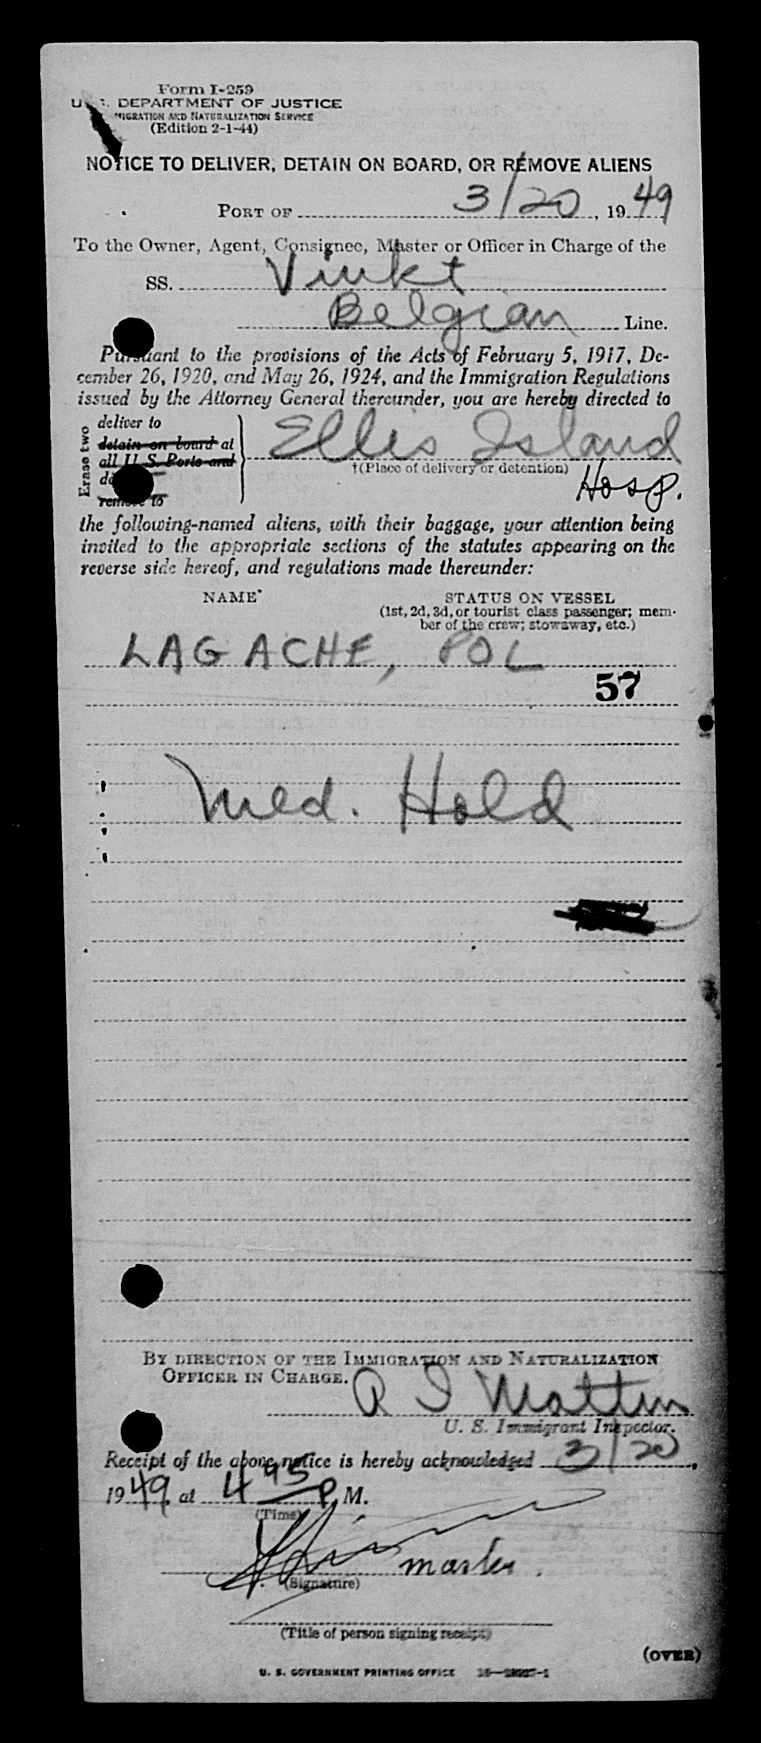 Form I-259
U. S. DEPARTMENT OF JUSTICE
IMMIGRATION AND NATURALIZATION SERVICE
(Edition 2-1-44)
NOTICE TO DELIVER, DETAIN ON BOARD, OR REMOVE ALIENS
PORT OF 3/20, 1949
To the Owner, Agent, Consignee, Master or Officer in Charge of the
SS. Vinkt
Belgian Line.
Pursuant to the provisions of the Acts of February 5, 1917, De-
cember 26, 1920, and May 26, 1924, and the Immigration Regulations
issued by the Attorney General thereunder, you are hereby directed to
Erase two
deliver to
detain on board at
all U. S. Ports and
remove to
Ellis Island
†(Place of delivery or detention)
Hosp.
the following-named aliens, with their baggage, your attention being
invited to the appropriate sections of the statutes appearing on the
reverse side hereof, and regulations made thereunder:
NAME* STATUS ON VESSEL
(1st, 2d, 3d, or tourist class passenger; mem-
ber of the crew; stowaway, etc.)
LAGACHE, POL
57
Med. Hold
BY DIRECTION OF THE IMMIGRATION AND NATURALIZATION
OFFICER IN CHARGE.
U. S. Immigrant Inspector.
Receipt of the above notice is hereby acknowledged 3/20,
1949, at 4 P. M.
(Time)
master.
(Signature)
(Title of person signing receipt)
(OVER)
U. S. GOVERNMENT PRINTING OFFICE